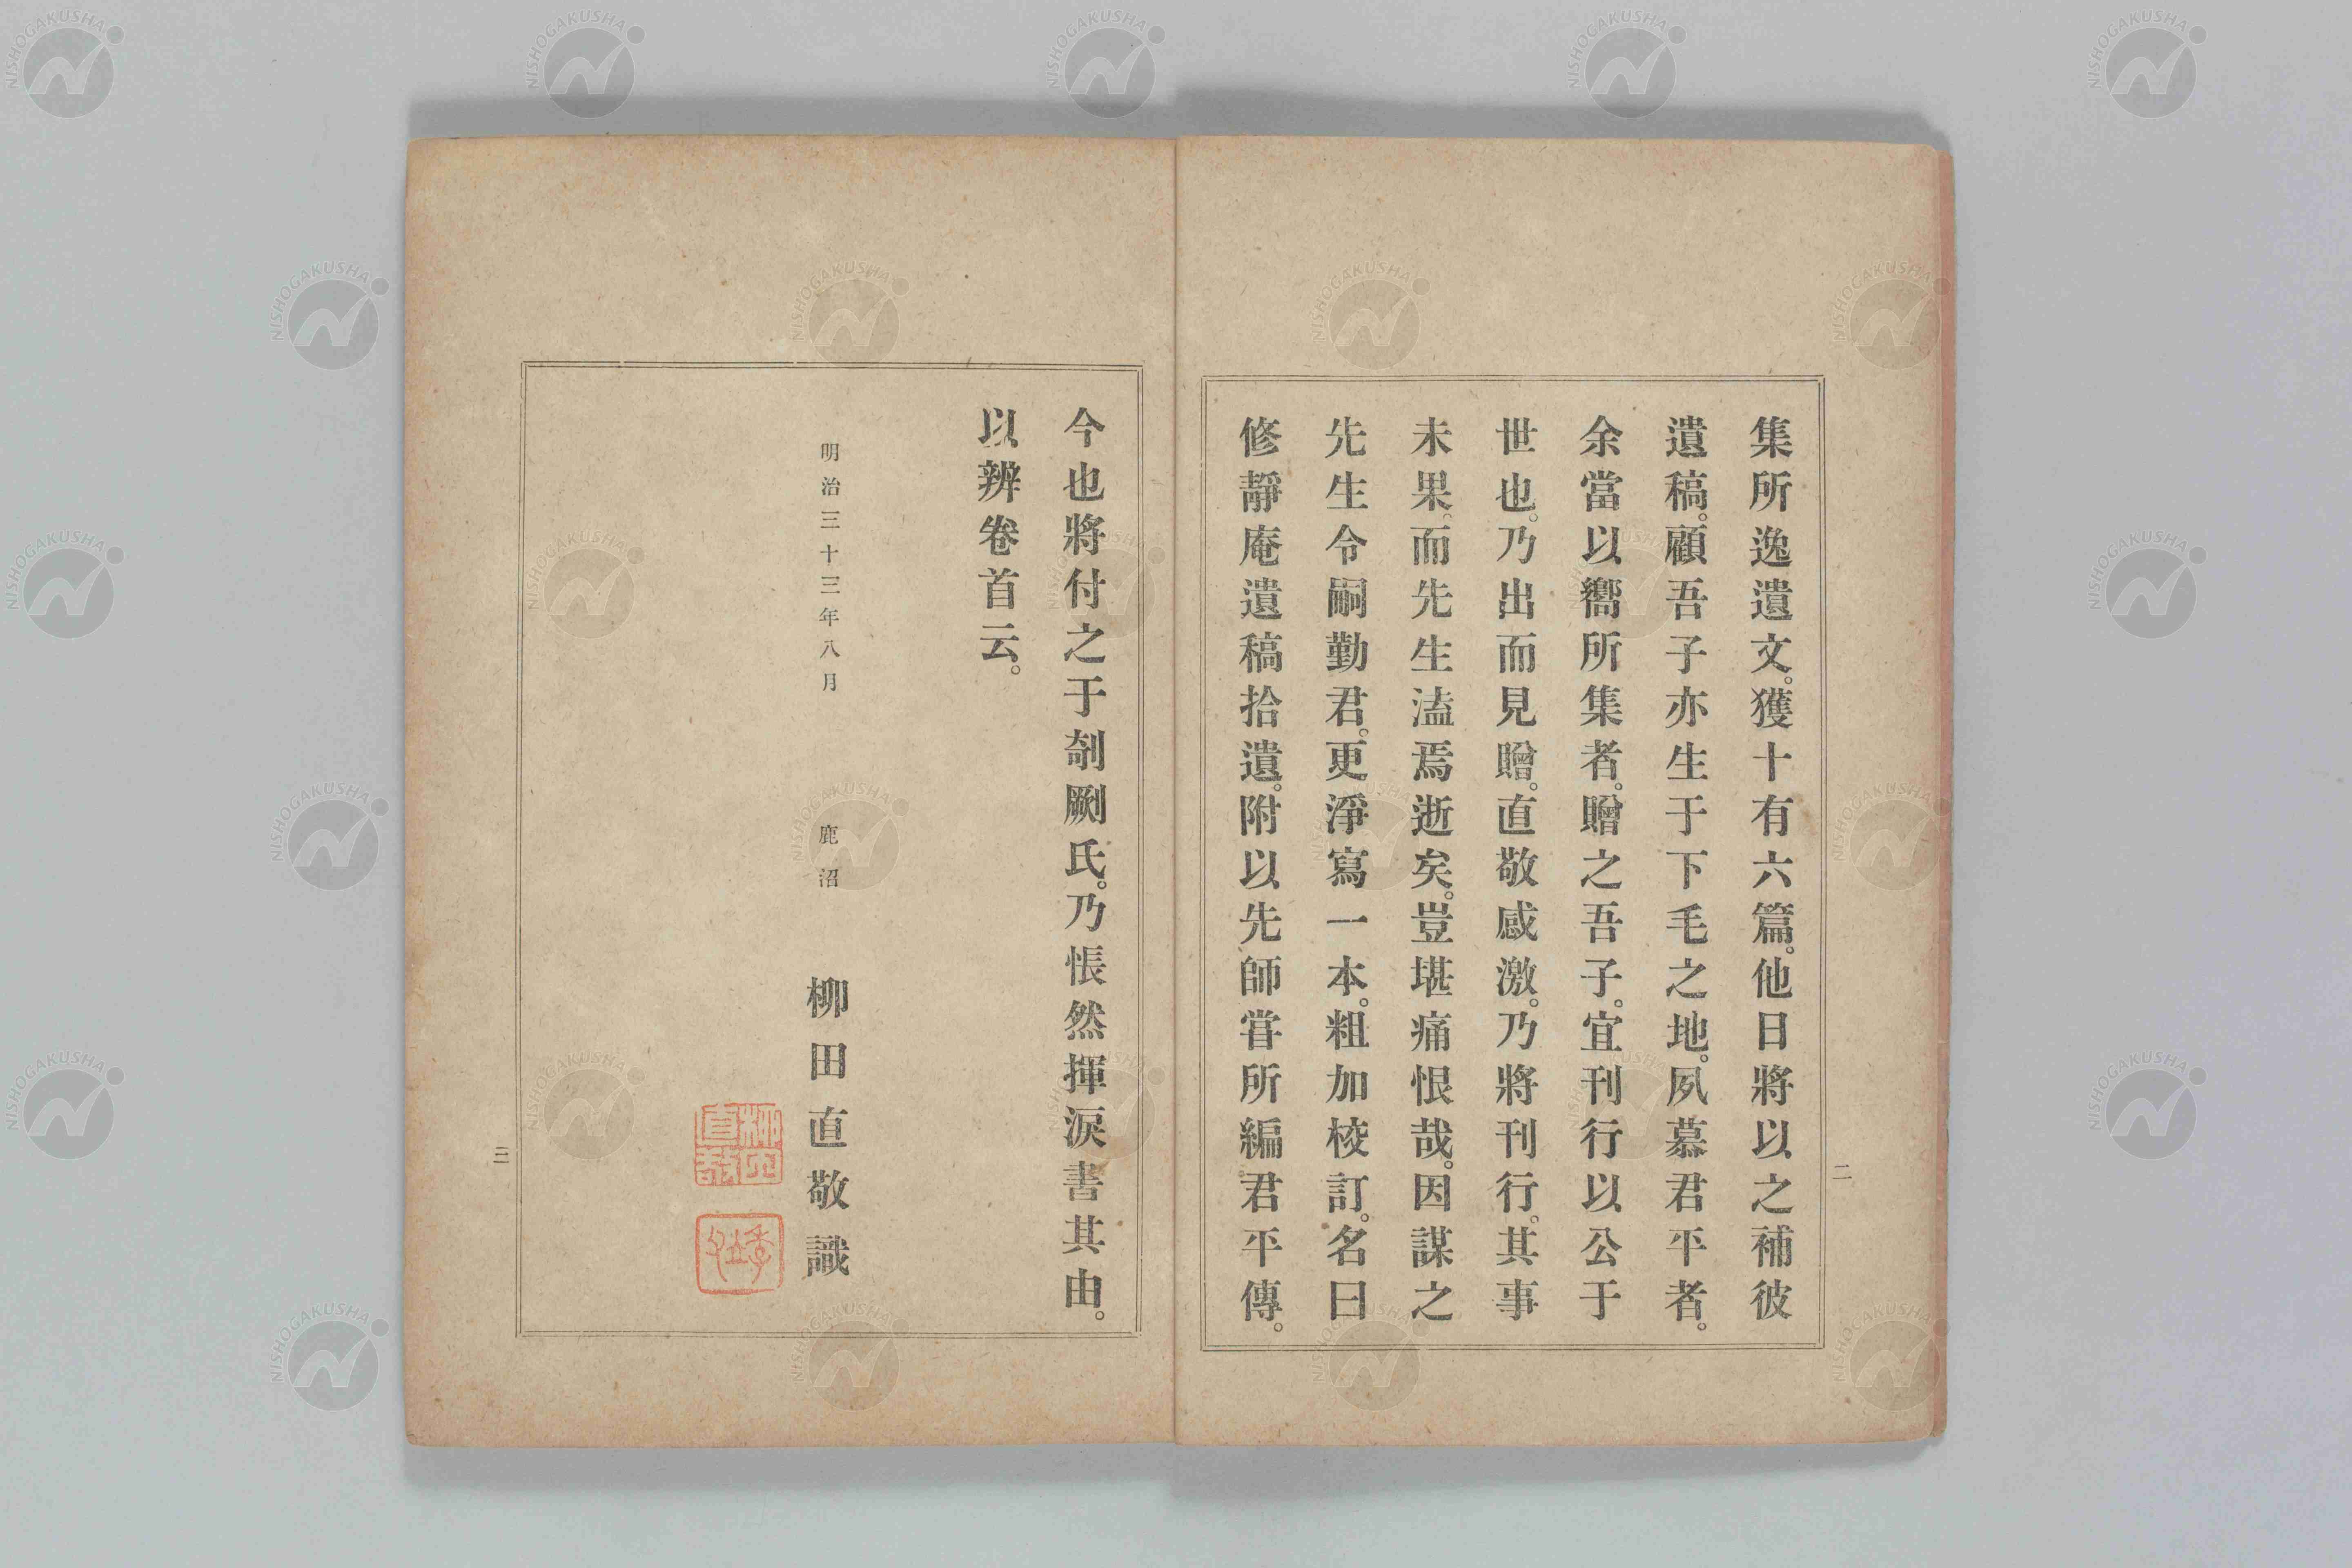 集所逸遺文。獲十有六篇。他日將以之補彼
遺稿。顧吾子亦生于下毛之地。夙慕君平者。
余當以嚮所集者。贈之吾子。宜刊行以公于
世也。乃出而見贈。直敬感激。乃將刊行。其事
未果。而先生溘焉逝矣。豈堪痛恨哉。因謀之
先生令嗣勤君。更淨寫一本。粗加校訂。名曰
修靜庵遺稿拾遺。附以先師甞所編君平傳。
二
今也將付之于剞劂氏。乃悵然揮淚書其由。
以辨卷首云。
明治三十三年八月
鹿沼 柳田直敬識
柳田直敬
三
NISHOGAKUSHA